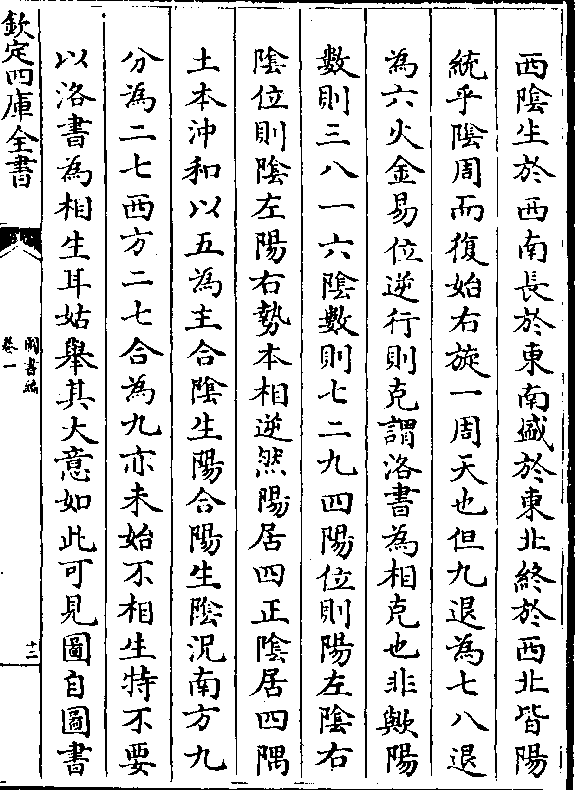 西陰生於西南長於東南盛於東北終於西北皆陽
統乎陰周而復始右旋一周天也但九退為七八退
為六火金易位逆行則克謂洛書為相克也非歟陽
數則三八一六陰數則七二九四陽位則陽左陰右
陰位則陰左陽右勢本相逆然陽居四正陰居四隅
土本沖和以五為主合陰生陽合陽生陰況南方九
分為二七西方二七合為九亦未始不相生特不要
以洛書為相生耳姑舉其大意如此可見圖自圖書
欽定四庫全書
圖書編
卷一
十二